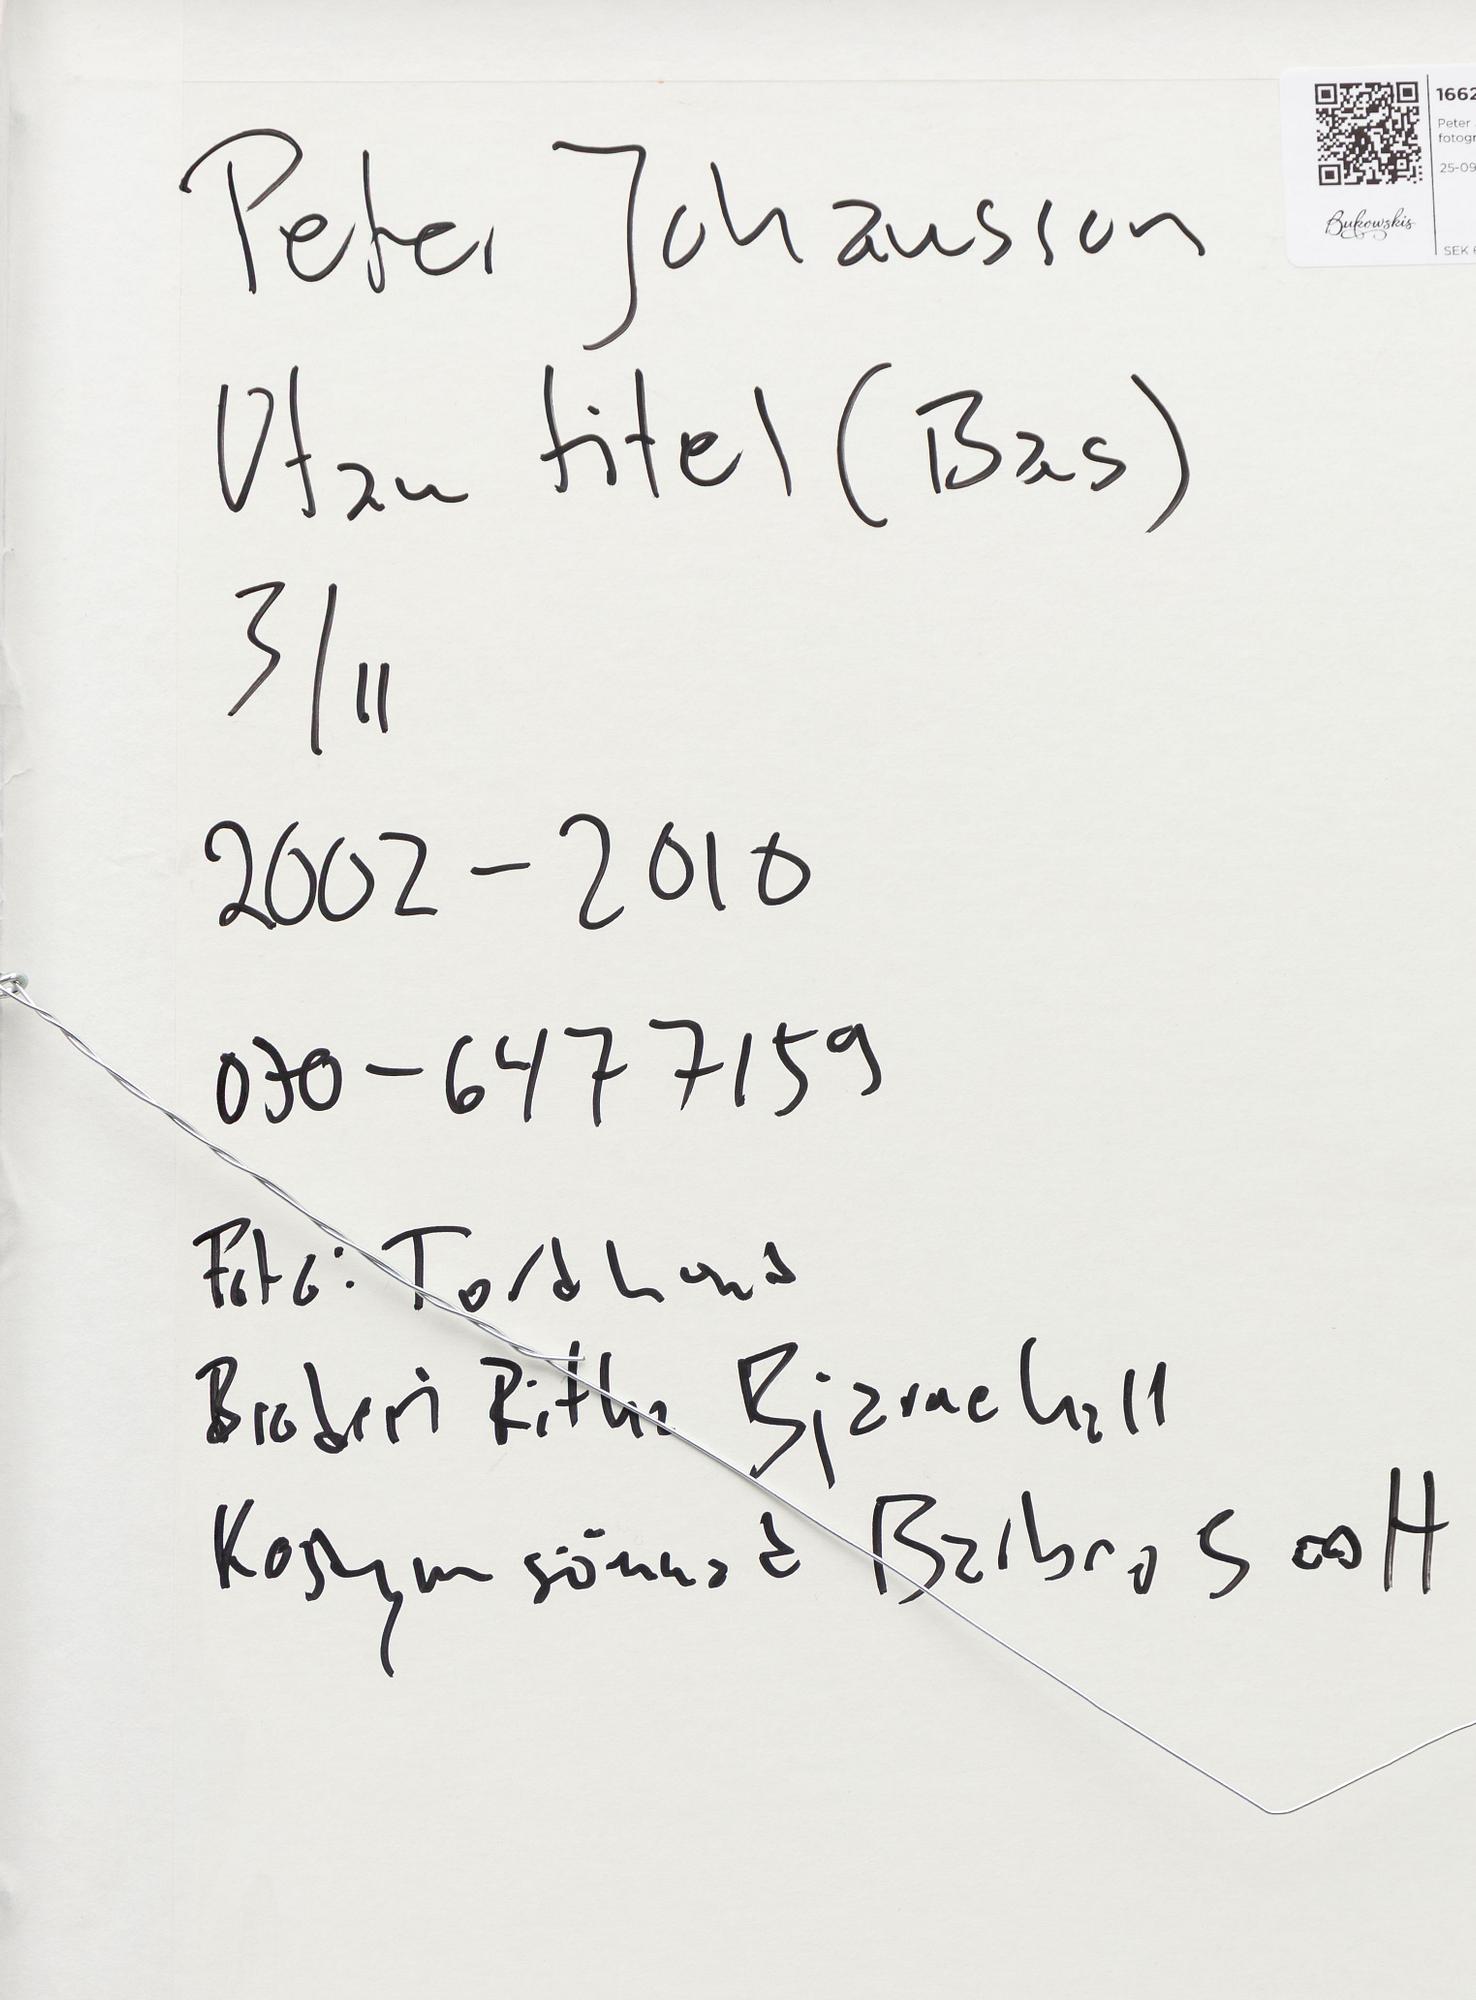 Peter Johansson
Utan titel (Bas)
3/11
2002-2010
070-6477159
Foto: Tord Lund
Broderi Ritha Bjarnehäll
Kostym sömnad Barbro S H
1662
Peter
fotogr
25-09
Bukowskis
SEK